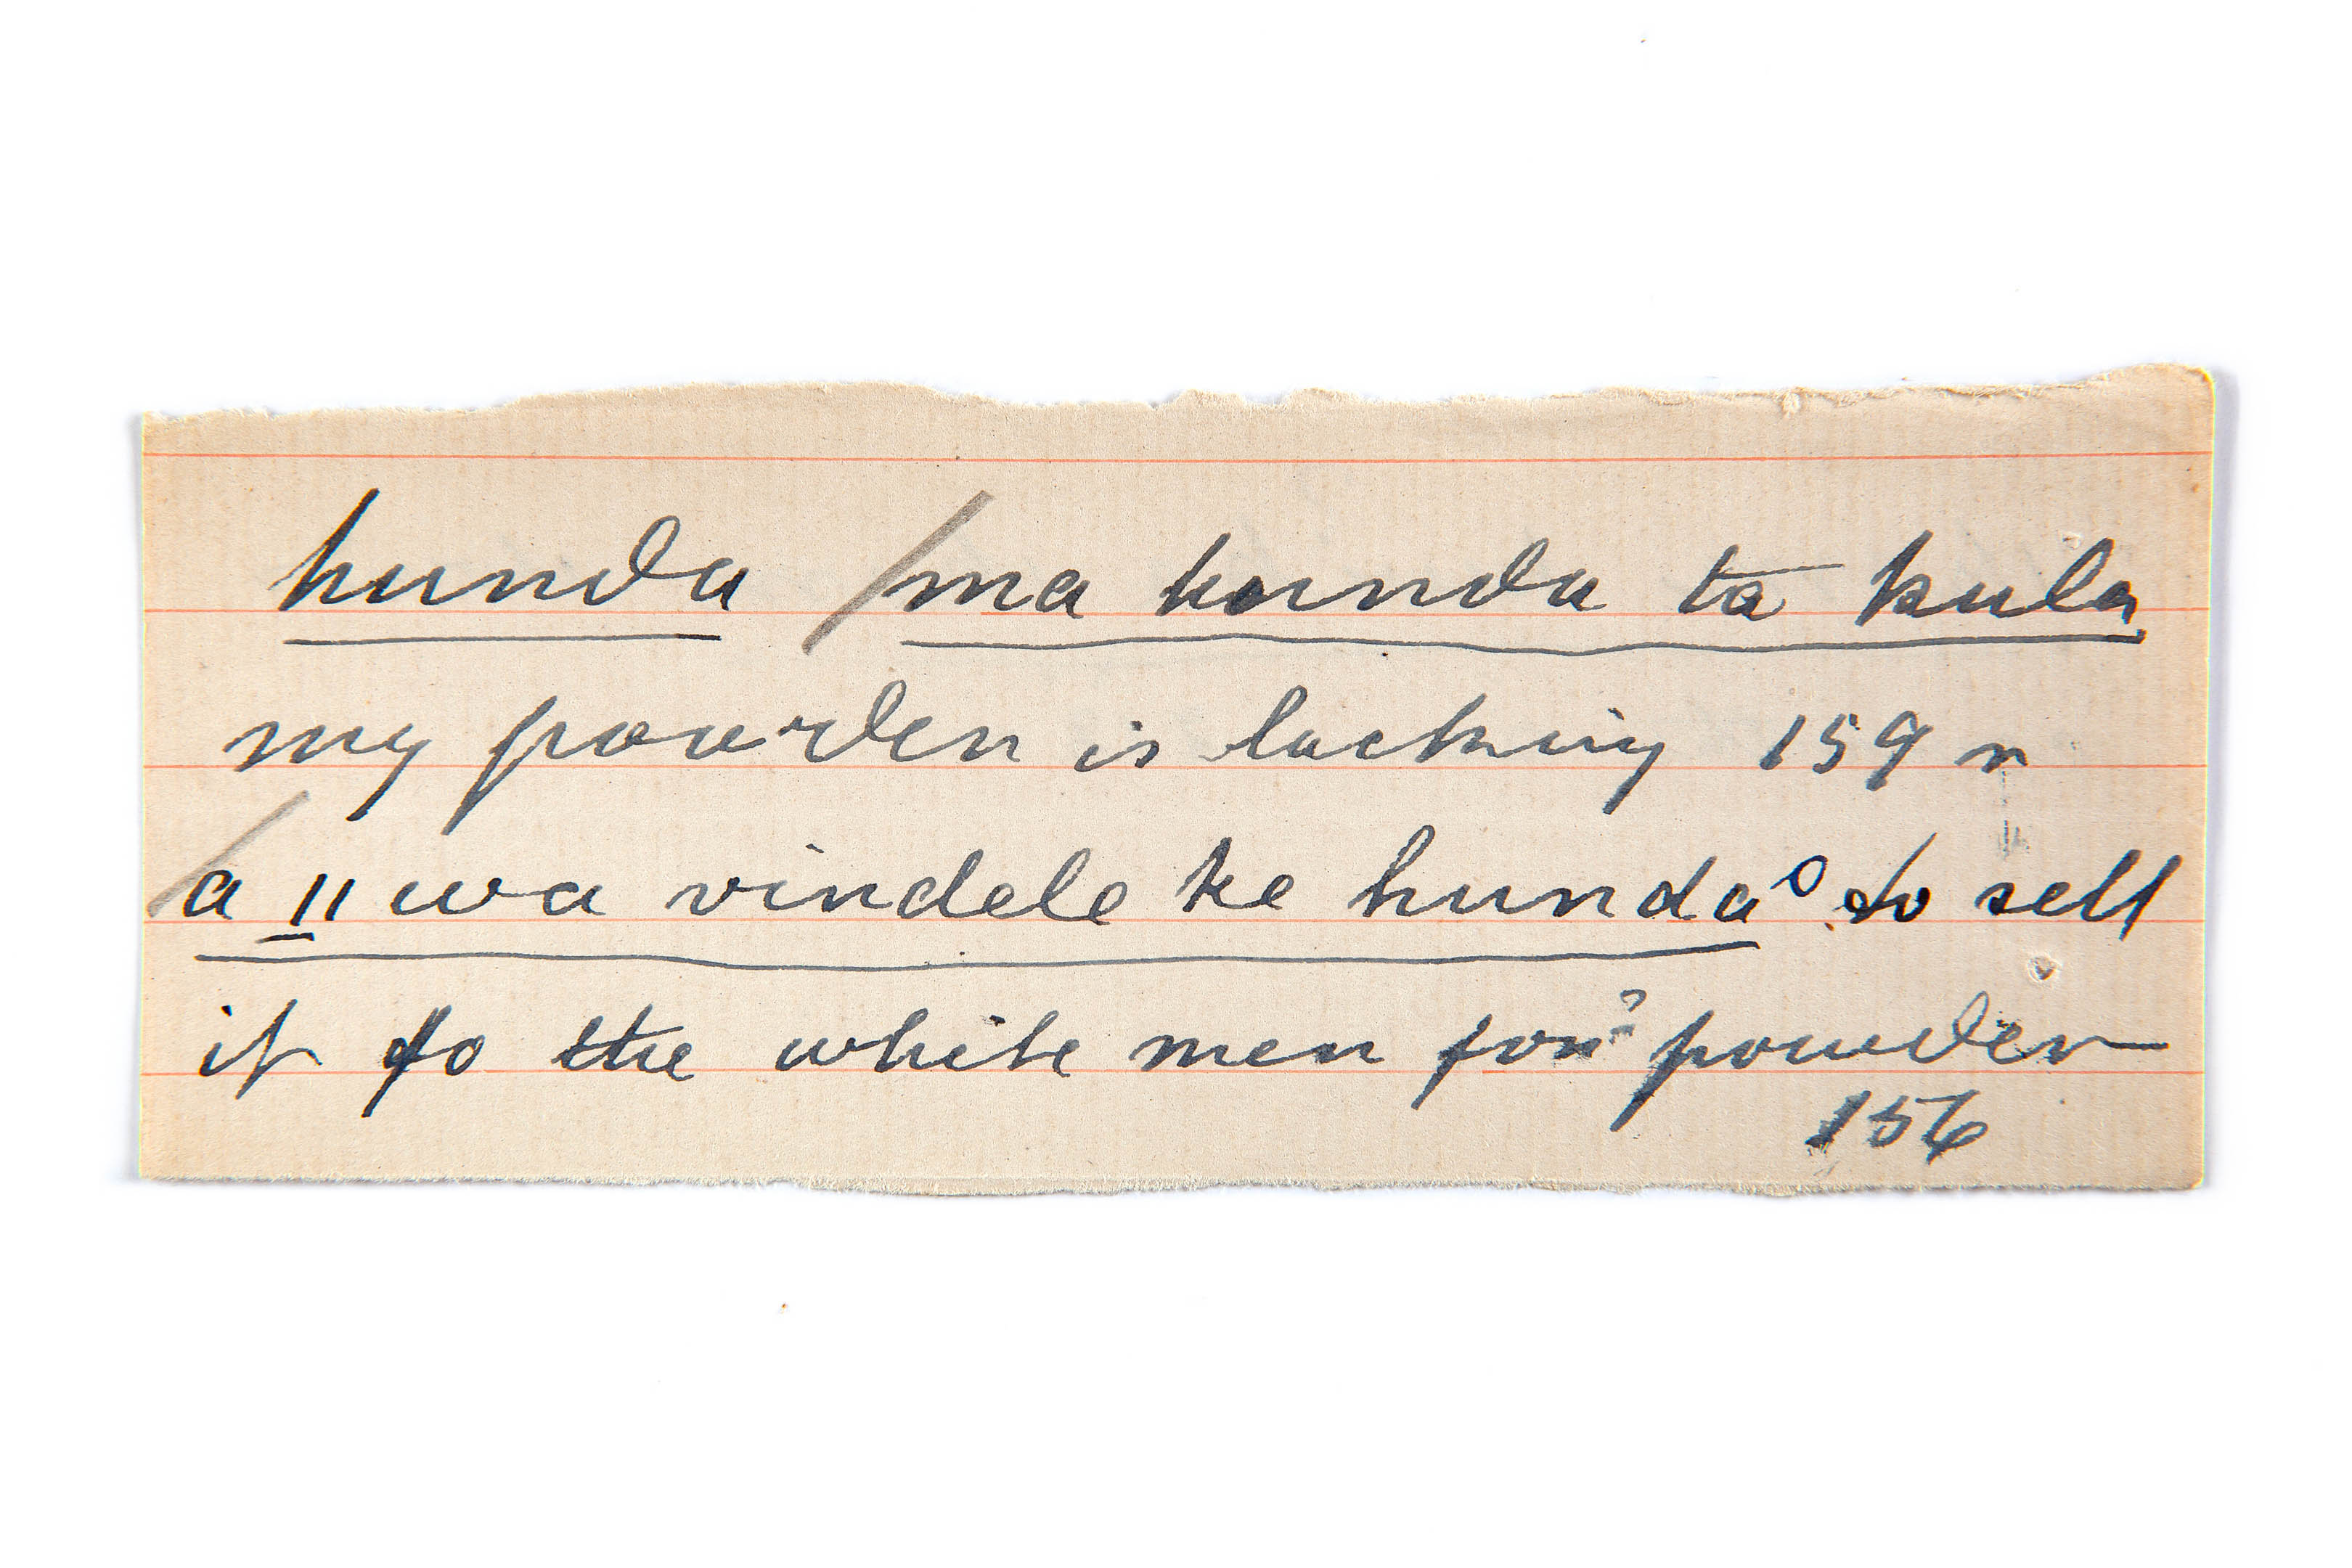 hunda / ma hunda ta kula
my powder is lacking 159 n
/ a || wa vindele ke hunda° to sell
it to the white men for? powder
156